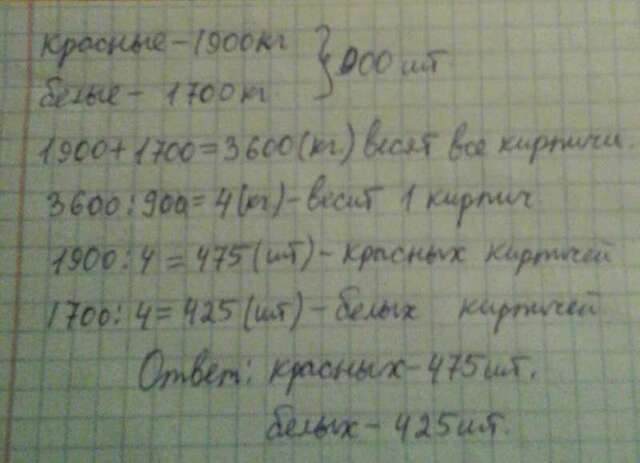 красные - 1900 кг } 900 шт
белые - 1700 кг
1900 + 1700 = 3600 (кг) весят все кирпичи.
3600 : 900 = 4 (кг) - весит 1 кирпич
1900 : 4 = 475 (шт) - красных кирпичей
1700 : 4 = 425 (шт) - белых кирпичей
Ответ: красных - 475 шт.
белых - 425 шт.